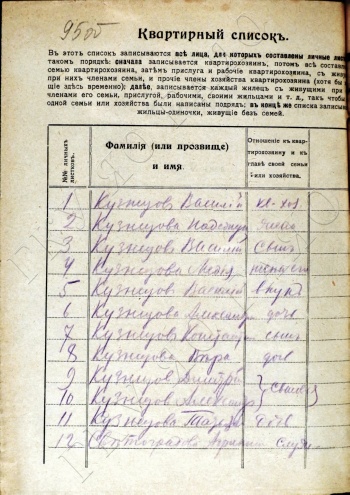 9505
Квартирный списокъ.
Въ этотъ списокъ записываются всѣ лица, для которыхъ составлены личные
такомъ порядкѣ: сначала записывается квартирохозяинъ, потомъ всѣ
семью квартирохозяина, затѣмъ прислуга и рабочіе квартирохозяина, съ
при нихъ членами семьи, и прочіе члены хозяйства (хотя бы
здѣсь временно); далѣе, записывается каждый жилецъ съ живущими при
членами его семьи, прислугой, рабочими, своими жильцами и т. д., такъ, чтобы
одной семьи или хозяйства были написаны подрядъ; въ концѣ же списка
жильцы-одиночки, живущіе безъ семей.
№№ личныхъ листковъ.
Фамилія (или прозвище) и имя.
Отношеніе къ квартирохозяину и къ главѣ своей семьи или хозяйства.
1 Кузнецовъ Василій кв-хоз
2 Кузнецова Надежда жена
3 Кузнецовъ Василій сынъ
4 Кузнецова Лидія
5 Кузнецовъ Василій внукъ
6 Кузнецова Александра дочь
7 Кузнецовъ Константинъ сынъ
8 Кузнецова Вѣра дочь
9 Кузнецовъ Дмитрій
10 Кузнецовъ Александръ
11 Кузнецова дочь
12